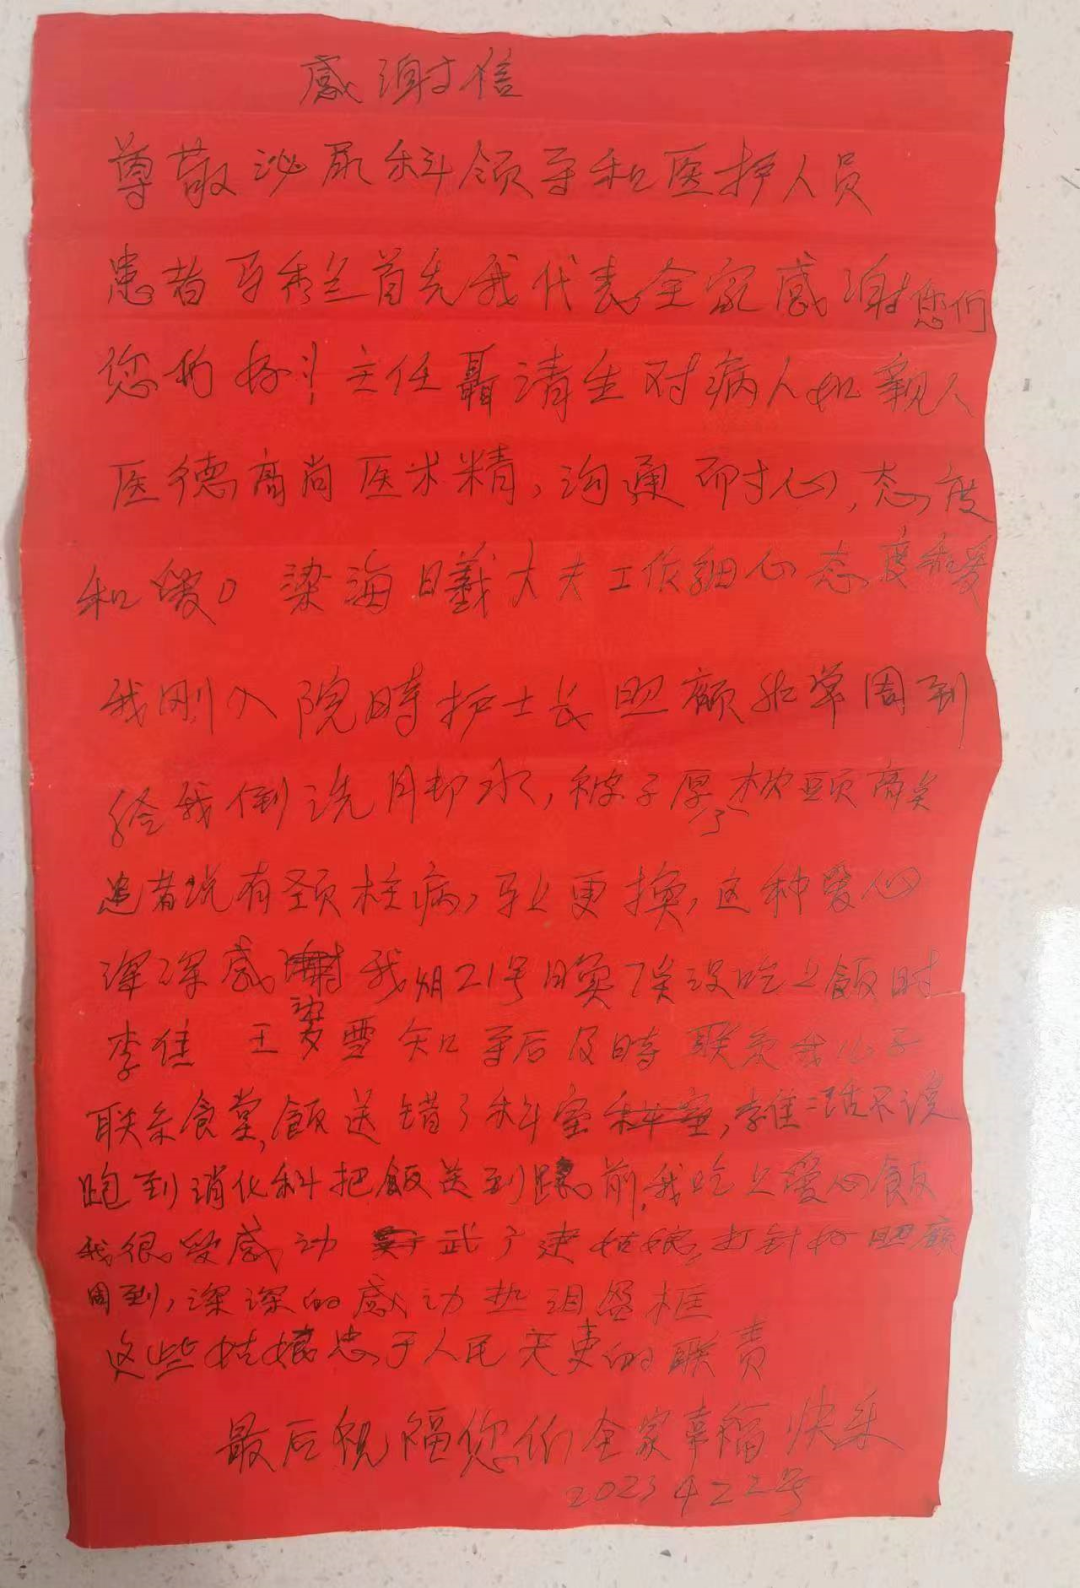 感谢信
尊敬泌尿科领导和医护人员
患者马秀兰首先我代表全家感谢您们
您们好! 主任聂清生对病人如亲人
医德高尚医术精,沟通耐心,态度
和爱。梁海曦大夫工作细心态度和爱
我刚入院時护士长照顾非常周到
给我倒洗脚水,被子厚了枕頭高矣
患者说有颈椎病,马上更换,这种爱心
深深感谢我 21号 没吃上飯时
李佳 王梦雪知导后及時联系我儿子
联系食堂,飯送错了科室,李佳二话不说
跑到消化科把飯送到跟前,我吃上爱心飯
我很受感动 武 建姑娘,打针好照顾
周到,深深的感动热泪盈框
这些姑娘忠于人民 的联责
最后祝福您们全家幸福快乐
2023 4 22号